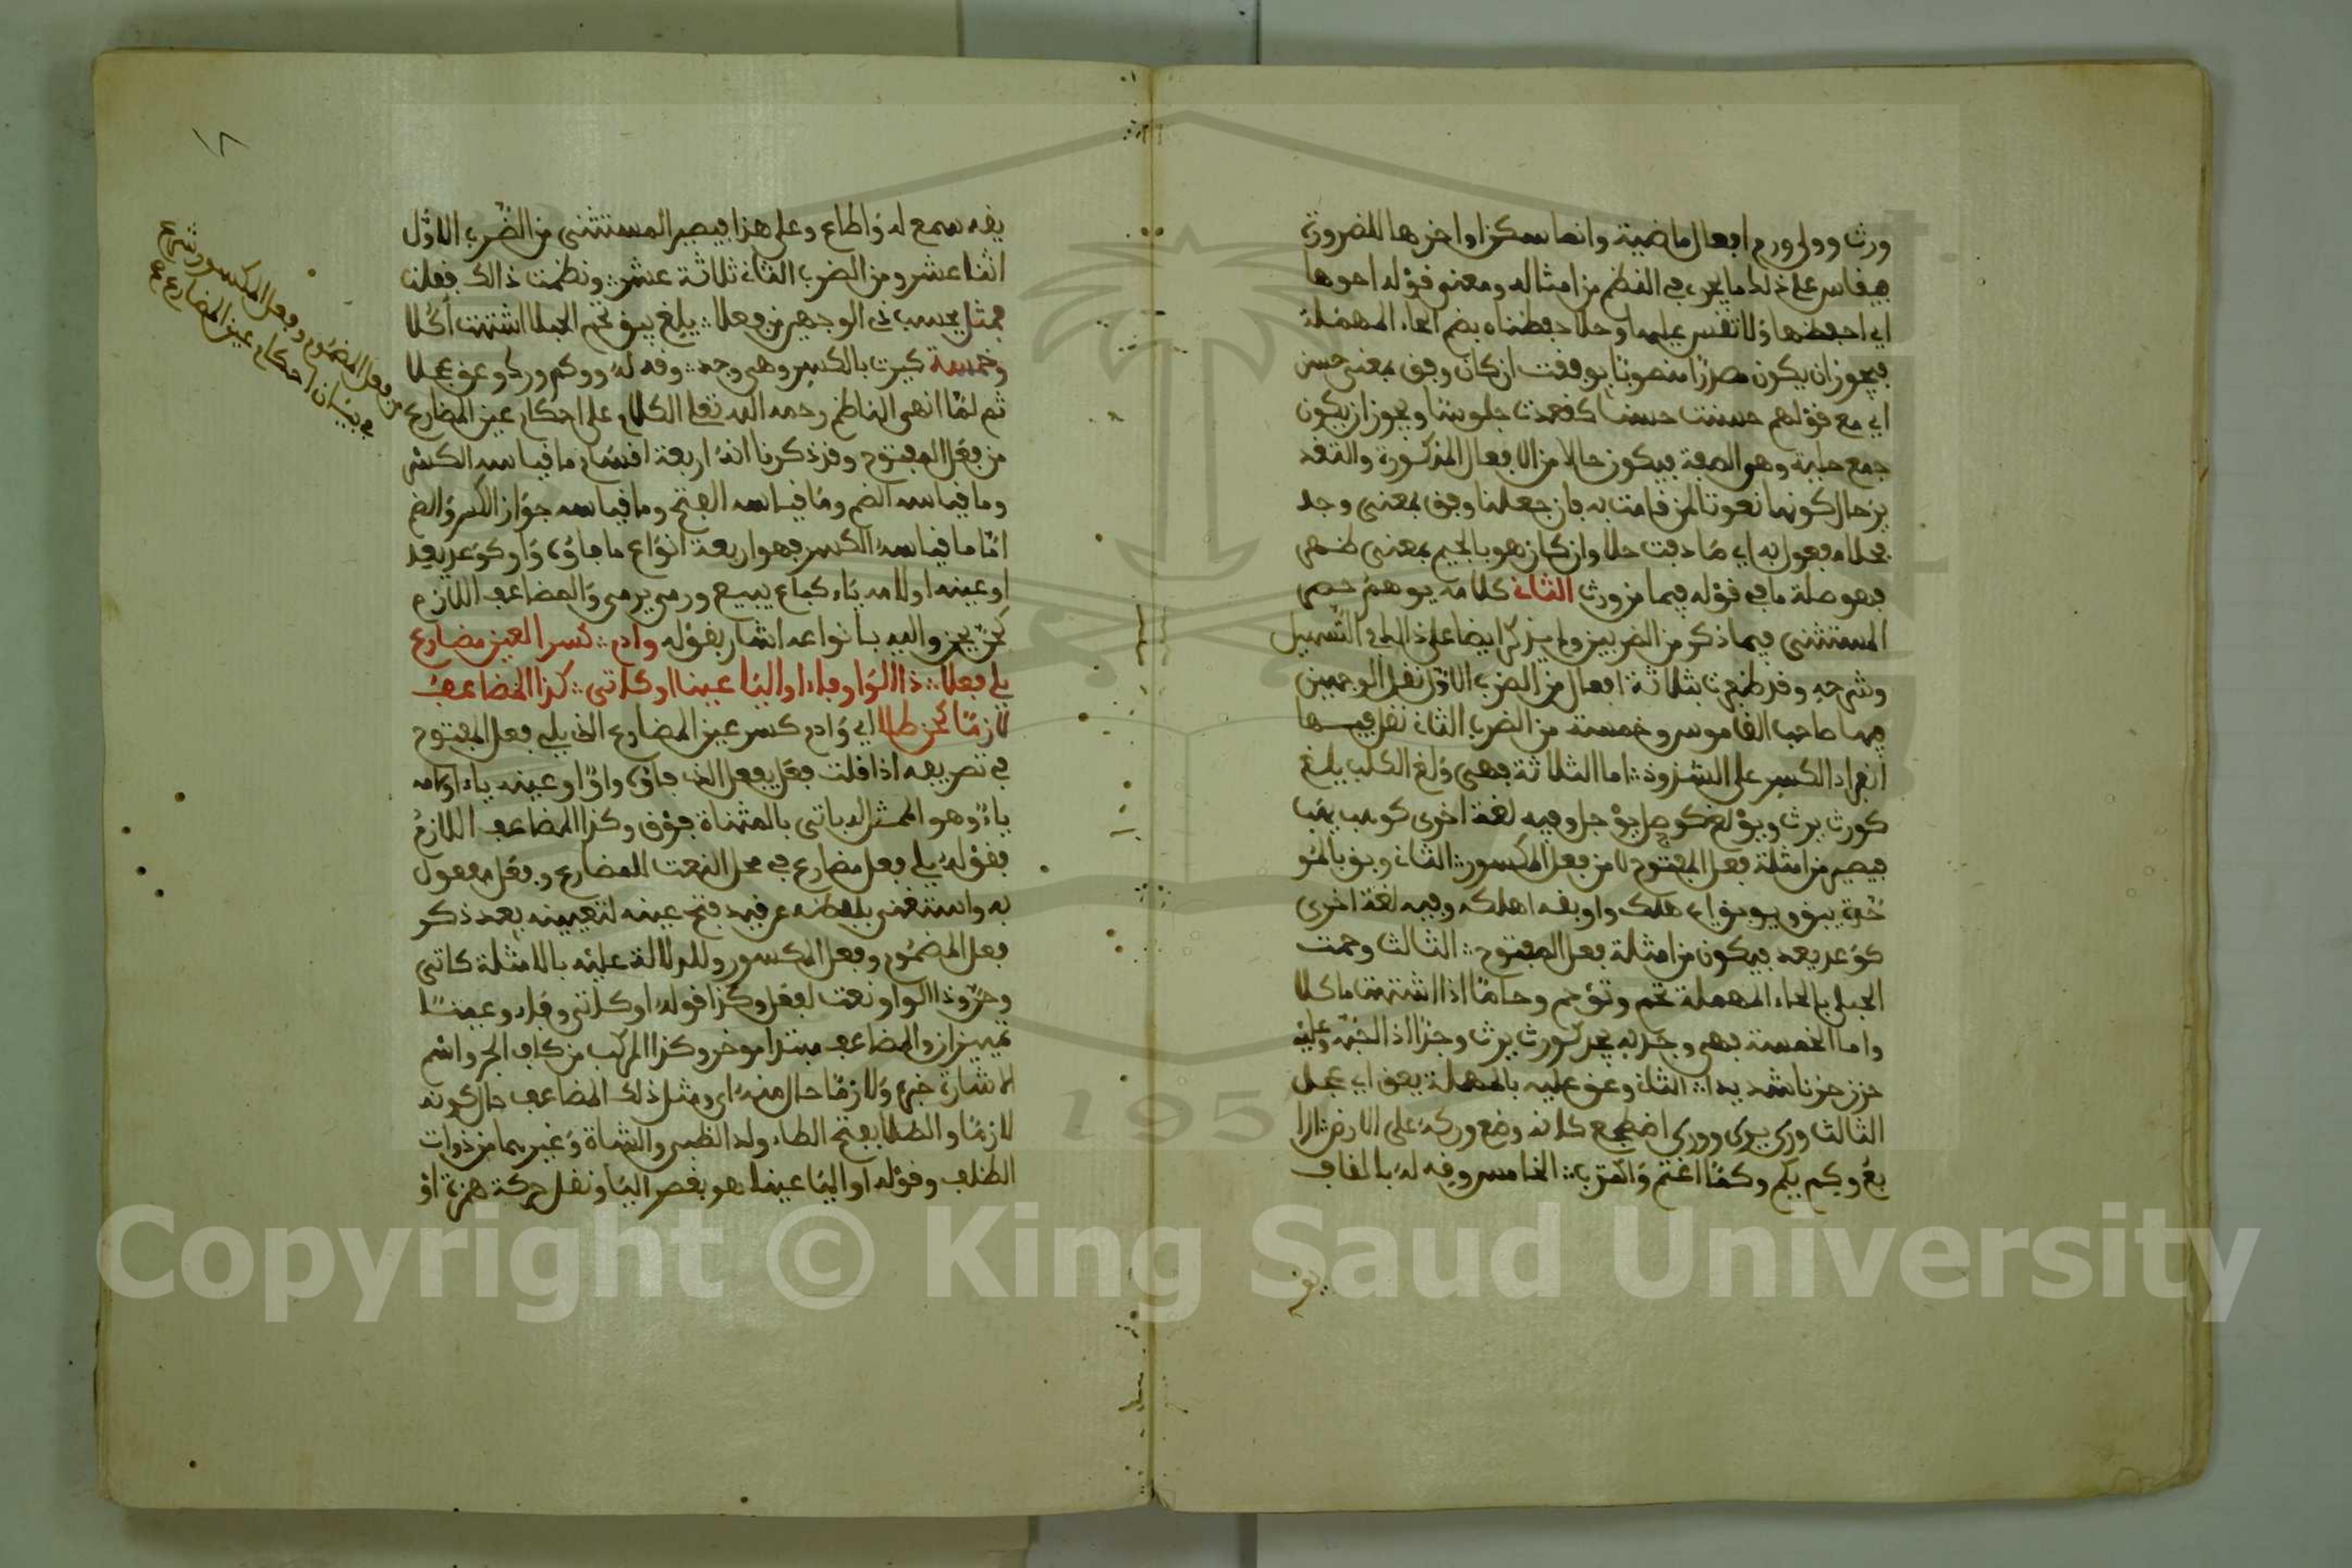 ورث وولي ورم افعال ماضية وانما سكن اواخرها للضرورة
فيقاس على ذلك ما يجيء في النظم من امثاله ومعنى قوله احوها
اي احفظها ولا تقس عليها وحلا حفظناه بضم الحاء المهملة
فيجوز ان يكون مصدرا منصوبا بوفقت ان كان وفق بمعنى حسن
اي مع قولهم حسنت حسنا كقعدت جلوسا ويجوز ان يكون
جمع حلية وهو الصفة فيكون حالا من الافعال المذكورة والتقد
ير حال كونها نعوتا لمن قامت به فان جعلنا وفق بمعنى وجد
فحلا مفعول به اي صادفت حلا وان كان هو بالجيم بمعنى ظهر
فهو صلة ما في قوله فيما من ورث الثاني كلامه يوهم حصر
المستثنى فيما ذكر من الضربين ولم يزد ايضا على ذلك في التسهيل
وشرحه وقد ظفرت بثلاثة افعال من الضرب الاول نقل الوجهين
فيها صاحب القاموس وخمسة من الضرب الثاني نقل فيها
انفراد الكسر على الشذوذ اما الثلاثة فهي ولغ الكلب يلغ
كورث يرث ويولغ كوجل يوجل وفيه لغة اخرى كوهب يهب
فيصير من امثلة فعل المفتوح لا من فعل المكسور الثاني وبق بالمو
حدة يبق ويوبق اي هلك واوبقه اهلكه وفيه لغة اخرى
كوعد يعد فيكون من امثلة فعل المفتوح الثالث وحمت
الحبلى بالحاء المهملة تحم وتوحم وحاما اذا اشتهت ماكلا
واما الخمسة فهي وجد به يجد كورث يرث وجدا اذا احبه وعليه
حزن حزنا شديدا الثاني وعق عليه بالمهملة يعق اي عجل
الثالث ورك يرك ووركا اضطجع كانه وضع وركه على الارض الرا
بع وكم يكم وكما اغتم واكترب الخامس وقه له بالقاف
يقه
يقه سمع له واطاع وعلى هذا فيصير المستثنى من الضرب الاول
اثنا عشر ومن الضرب الثاني ثلاثة عشر ونظمت ذالك فقلت
فمثل يحسب ذي الوجهين من فعلا يلغ يبق تحم الحبلى اشتهت اكلا
وخمسة كيرث بالكسر وهي وجد وقه له ووكم ورك وعق عجلا
ثم لما انهى الناظم رحمه الله تعلى الكلام على احكام عين المضارع
من فعل المفتوح وقد ذكرنا انه اربعة اقسام ما قياسه الكسر
وما قياسه الضم وما قياسه الفتح وما قياسه جواز الكسر والضم
اما ما قياسه الكسر فهو اربعة انواع ما فاؤه واو كوعد يعد
او عينه او لامه ياء كباع يبيع ورمى يرمي والمضاعف اللازم
كحن يحن واليه بانواعه اشار بقوله وادم كسر العين مضارع
يلي فعلا ذا الواو فاء او اليا عينا او كاتى كذا المضاعف
لازما كحن طلا اي وادم كسر عين المضارع الذي يلي فعل المفتوح
في تصريفه اذا قلت فعل يفعل الذي فاؤه واوا او عينه ياء او لامه
ياء وهو الممثل له باتى بالمثناة فوق وكذا المضاعف اللازم
فقوله يلي فعل مضارع في محل النعت للمضارع وفعل مفعول
به واستغنى بلفظه عن قيد فتح عينه لتعيينه بعد ذكر
فعل المضموم وفعل المكسور وللدلالة عليه بالامثلة كاتى
وحن وذا الواو نعت لفعل وكذا قوله او كاتى وفاء وعينا
تمييزان والمضاعف مبتدا موخر وكذا المركب من كاف الجر واسم
الاشارة خبره ولازما حال منه اي ومثل ذلك المضاعف حال كونه
لازما والطلا بفتح الطاء ولد الظبي والشاة وغيرهما من ذوات
الظلف وقوله او اليا عينا هو بقصر اليا ونقل حركة همزة او
من فعل المضموم وفعل المكسور شرع
في بيان احكام عين المضارع
١٨
Copyright © King Saud University
1957